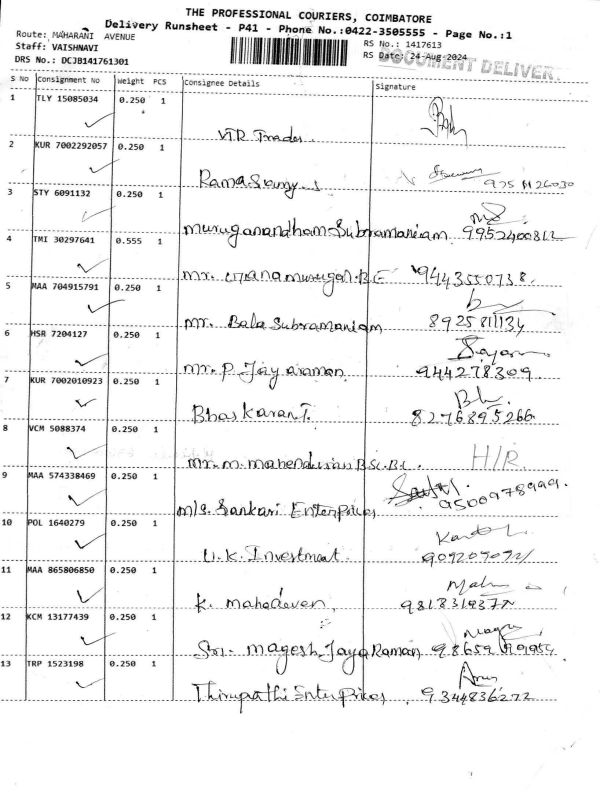 THE PROFESSIONAL COURIERS, COIMBATORE
Delivery Runsheet - P41 - Phone No.:0422-3505555 - Page No.:1
Route: MAHARANI AVENUE
Staff: VAISHNAVI
RS No.: 1417613
RS Date: 24-Aug-2024
DOCUMENT DELIVER
DRS No.: DCJB141761301
S No Consignment No Weight PCS Consignee Details Signature
1 TLY 15085034 0.250 1
VTR Trades
2 KUR 7002292057 0.250 1
Ramasamy
3 STY 6091132 0.250 1
Muruganandham Subramaniam 9952400812
4 TMI 30297641 0.555 1
Mr. B.E 9443550738
5 MAA 704915791 0.250 1
Mr. Bala Subramaniam 8925811134
6 HSR 7204127 0.250 1
Mr. P Jayaraman 944278309
7 KUR 7002010923 0.250 1
Bhaskaran T. 8276895266
8 VCM 5088374 0.250 1
Mr. M. H/R
9 MAA 574338469 0.250 1
M/s. Sankari Enterprices 9500978999
10 POL 1640279 0.250 1
U.K. Investment
11 MAA 865806850 0.250 1
K. Mahadevan
12 KCM 13177439 0.250 1
Magesh Jaya Raman
13 TRP 1523198 0.250 1
Thirupathi Enterprices 9344836272